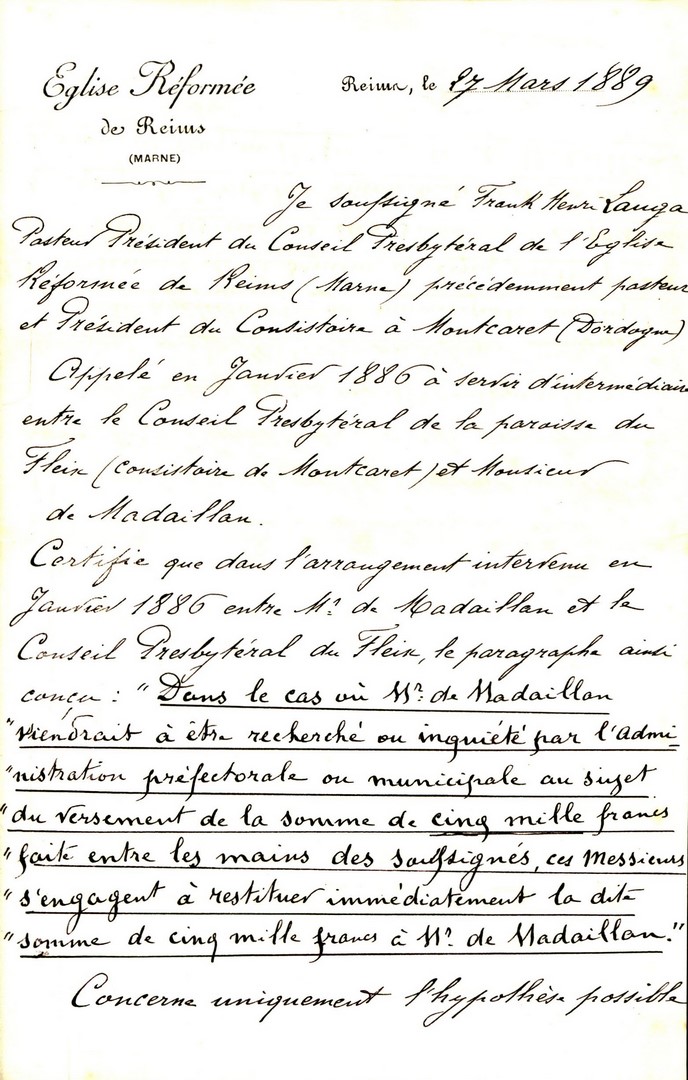 Eglise Réformée
de Reims
(MARNE)
Reims, le 27 Mars 1889
Je soussigné Frank Henri Lauga
Pasteur Président du Conseil Presbytéral de l'Eglise
Réformée de Reims (Marne) précédemment pasteur
et Président du Consistoire à Montcaret (Dordogne)
Appelé en Janvier 1886 à servir d'intermédiaire
entre le Conseil Presbytéral de la paroisse du
Fleix (consistoire de Montcaret) et Monsieur
de Madaillan.
Certifie que dans l'arrangement intervenu en
Janvier 1886 entre Mr. de Madaillan et le
Conseil Presbytéral du Fleix, le paragraphe ainsi
conçu : "Dans le cas où Mr. de Madaillan
"viendrait à être recherché ou inquiété par l'Admi-
"nistration préfectorale ou municipale au sujet
"du versement de la somme de cinq mille francs
"faite entre les mains des soussignés, ces Messieurs
"s'engagent à restituer immédiatement la dite
"somme de cinq mille francs à Mr. de Madaillan."
Concerne uniquement l'hypothèse possible